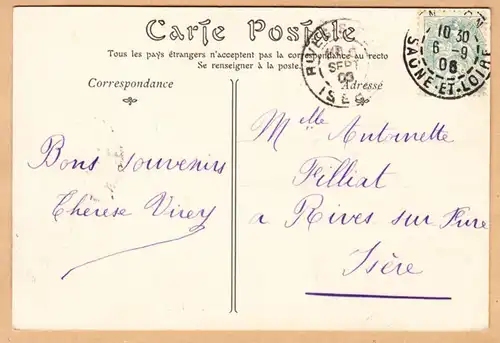 Carte Postale
Tous les pays étrangers n'acceptent pas la correspondance au recto
Se renseigner à la poste.
Correspondance
Adressé
RIVES
SEPT
ISÈRE
10 30
6 - 9
06
SAÔNE-ET-LOIRE
Bons souvenirs
Thérèse Virey
Mlle Antoinette
Filliat
a Rives sur Fure
Isère